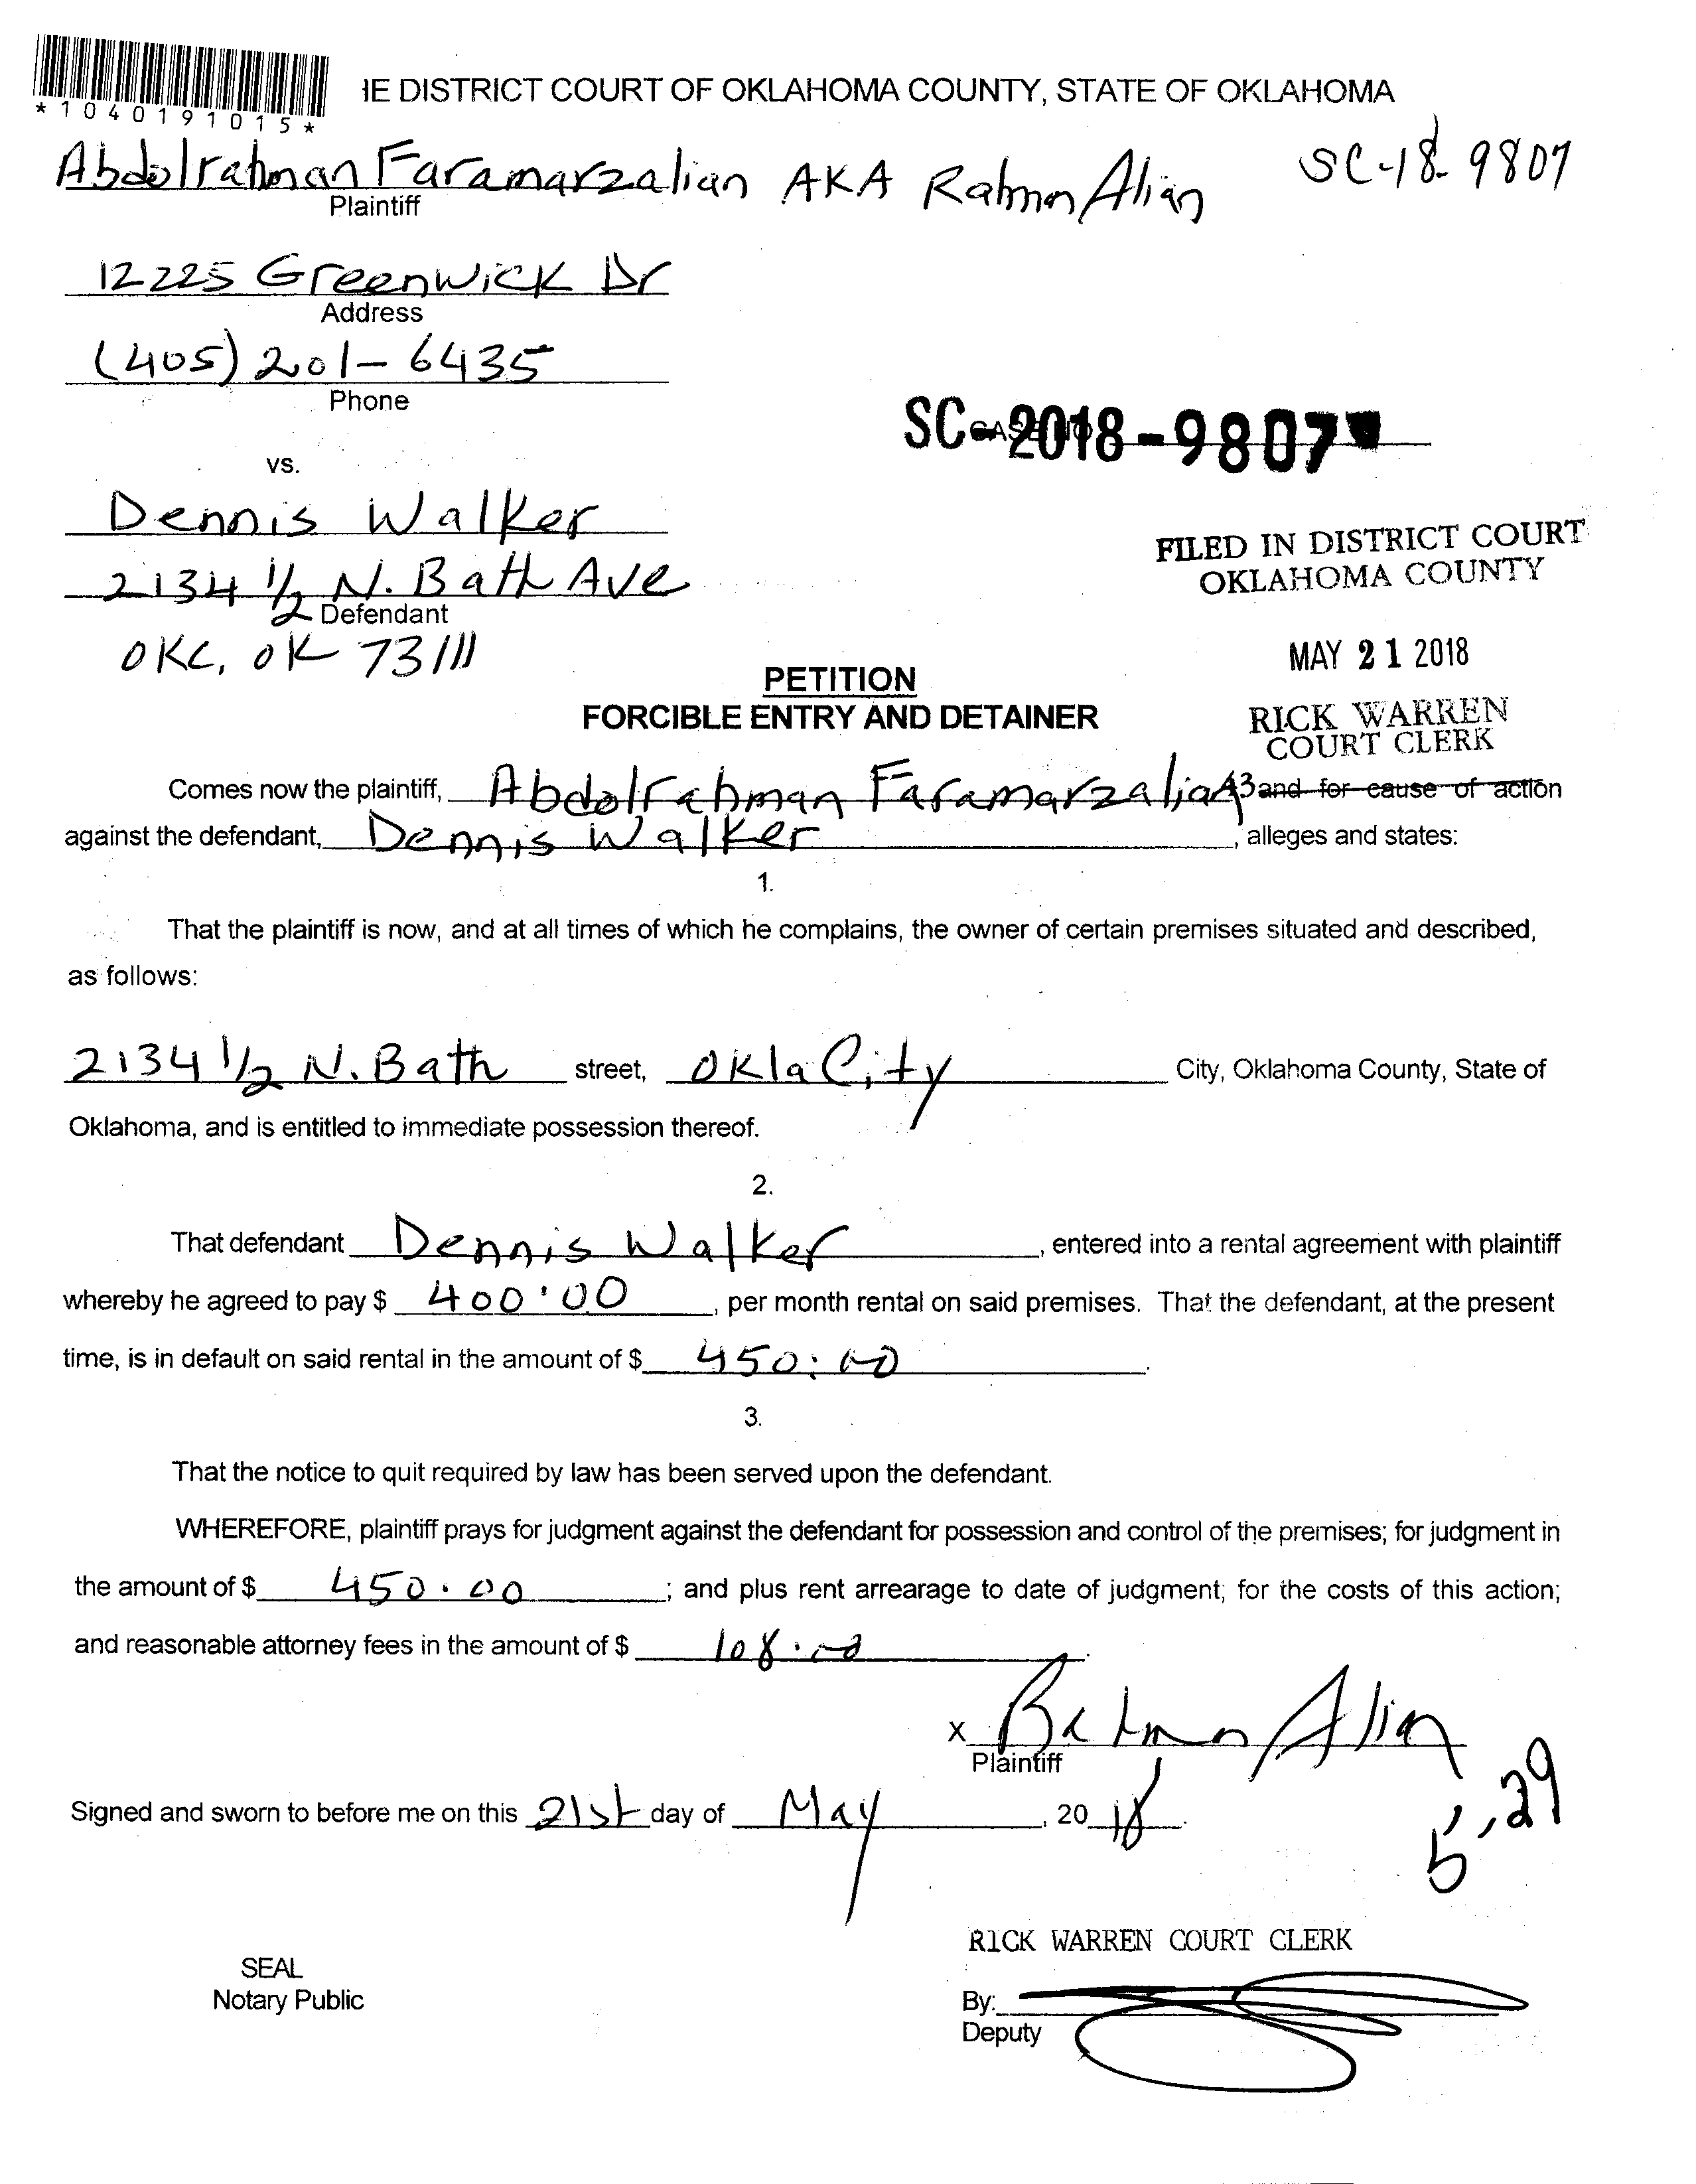 *1040191015*
IE DISTRICT COURT OF OKLAHOMA COUNTY, STATE OF OKLAHOMA
Abdolrahman Faramarzalian AKA Rahmn Alian SC-18-9807
Plaintiff
12225 Greenwick Dr
Address
(405) 201-6435
Phone
SC-2018-9807
vs.
Dennis Walker
2134 1/2 N. Bath Ave
Defendant
OKC, OK 73111
FILED IN DISTRICT COURT
OKLAHOMA COUNTY
MAY 21 2018
RICK WARREN
COURT CLERK
PETITION
FORCIBLE ENTRY AND DETAINER
Comes now the plaintiff, Abdolrahman Faramarzalian 43 and for cause of action
against the defendant, Dennis Walker, alleges and states:
1.
That the plaintiff is now, and at all times of which he complains, the owner of certain premises situated and described,
as follows:
2134 1/2 N. Bath street, Okla City City, Oklahoma County, State of
Oklahoma, and is entitled to immediate possession thereof.
2.
That defendant Dennis Walker, entered into a rental agreement with plaintiff
whereby he agreed to pay $ 400.00, per month rental on said premises. That the defendant, at the present
time, is in default on said rental in the amount of $ 450.00.
3.
That the notice to quit required by law has been served upon the defendant.
WHEREFORE, plaintiff prays for judgment against the defendant for possession and control of the premises; for judgment in
the amount of $ 450.00; and plus rent arrearage to date of judgment; for the costs of this action;
and reasonable attorney fees in the amount of $ 108.00.
X Rahmn Alian
Plaintiff
Signed and sworn to before me on this 21st day of May, 2018.
5,29
RICK WARREN COURT CLERK
SEAL
Notary Public
By:
Deputy